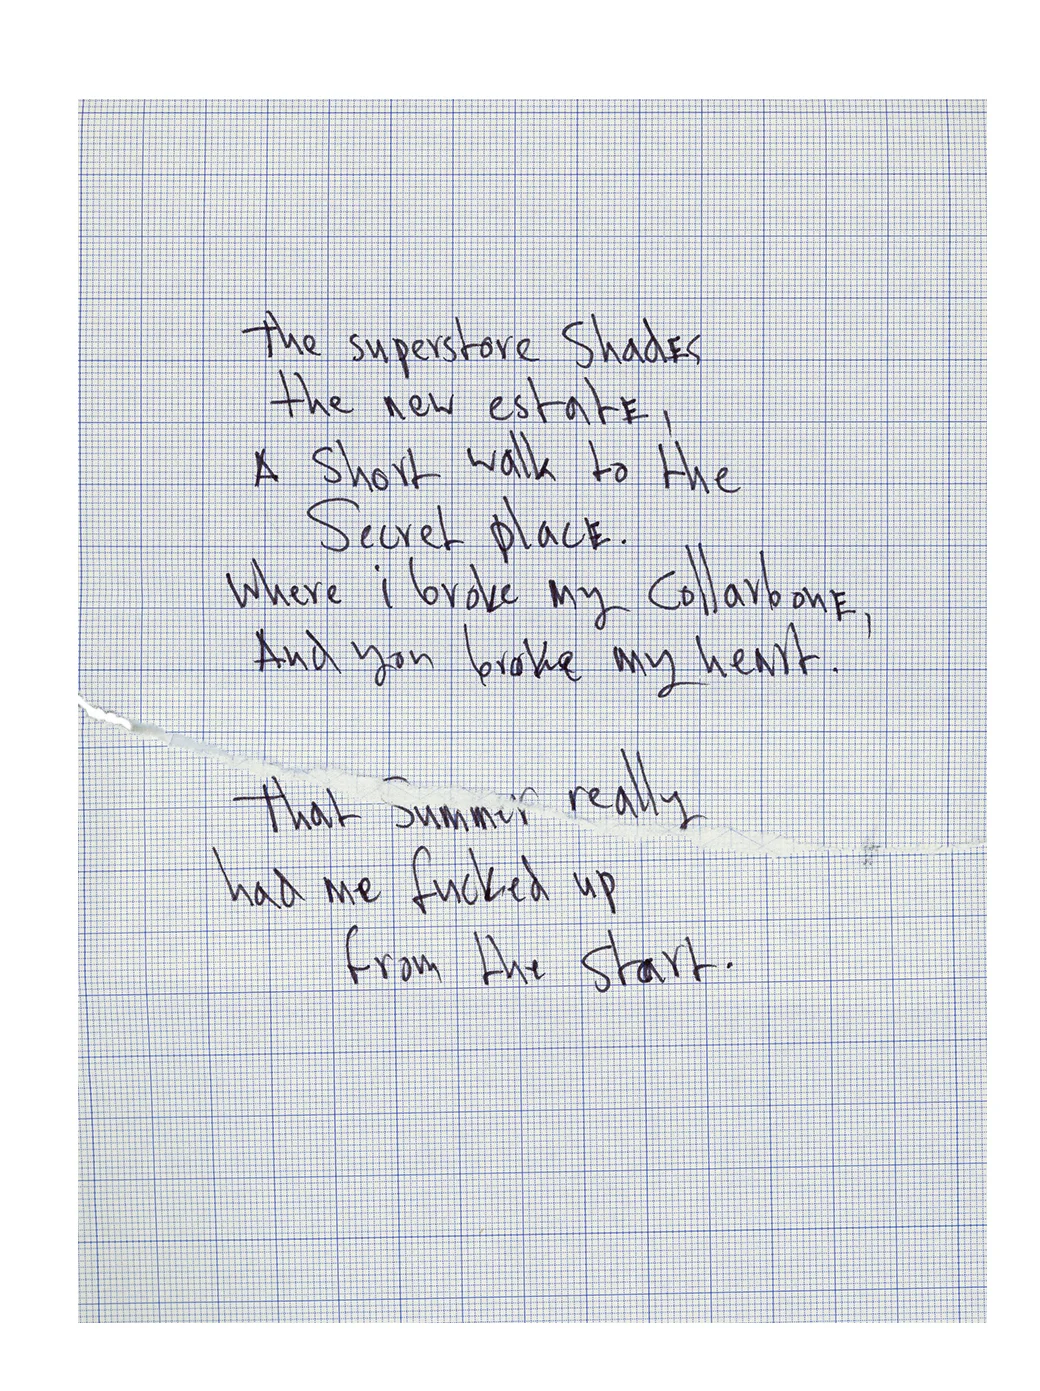 The superstore Shades
the new estate,
A Short walk to the
Secret place.
Where i broke my Collarbone,
And you broke my heart.
that Summer really
had me fucked up
from the Start.